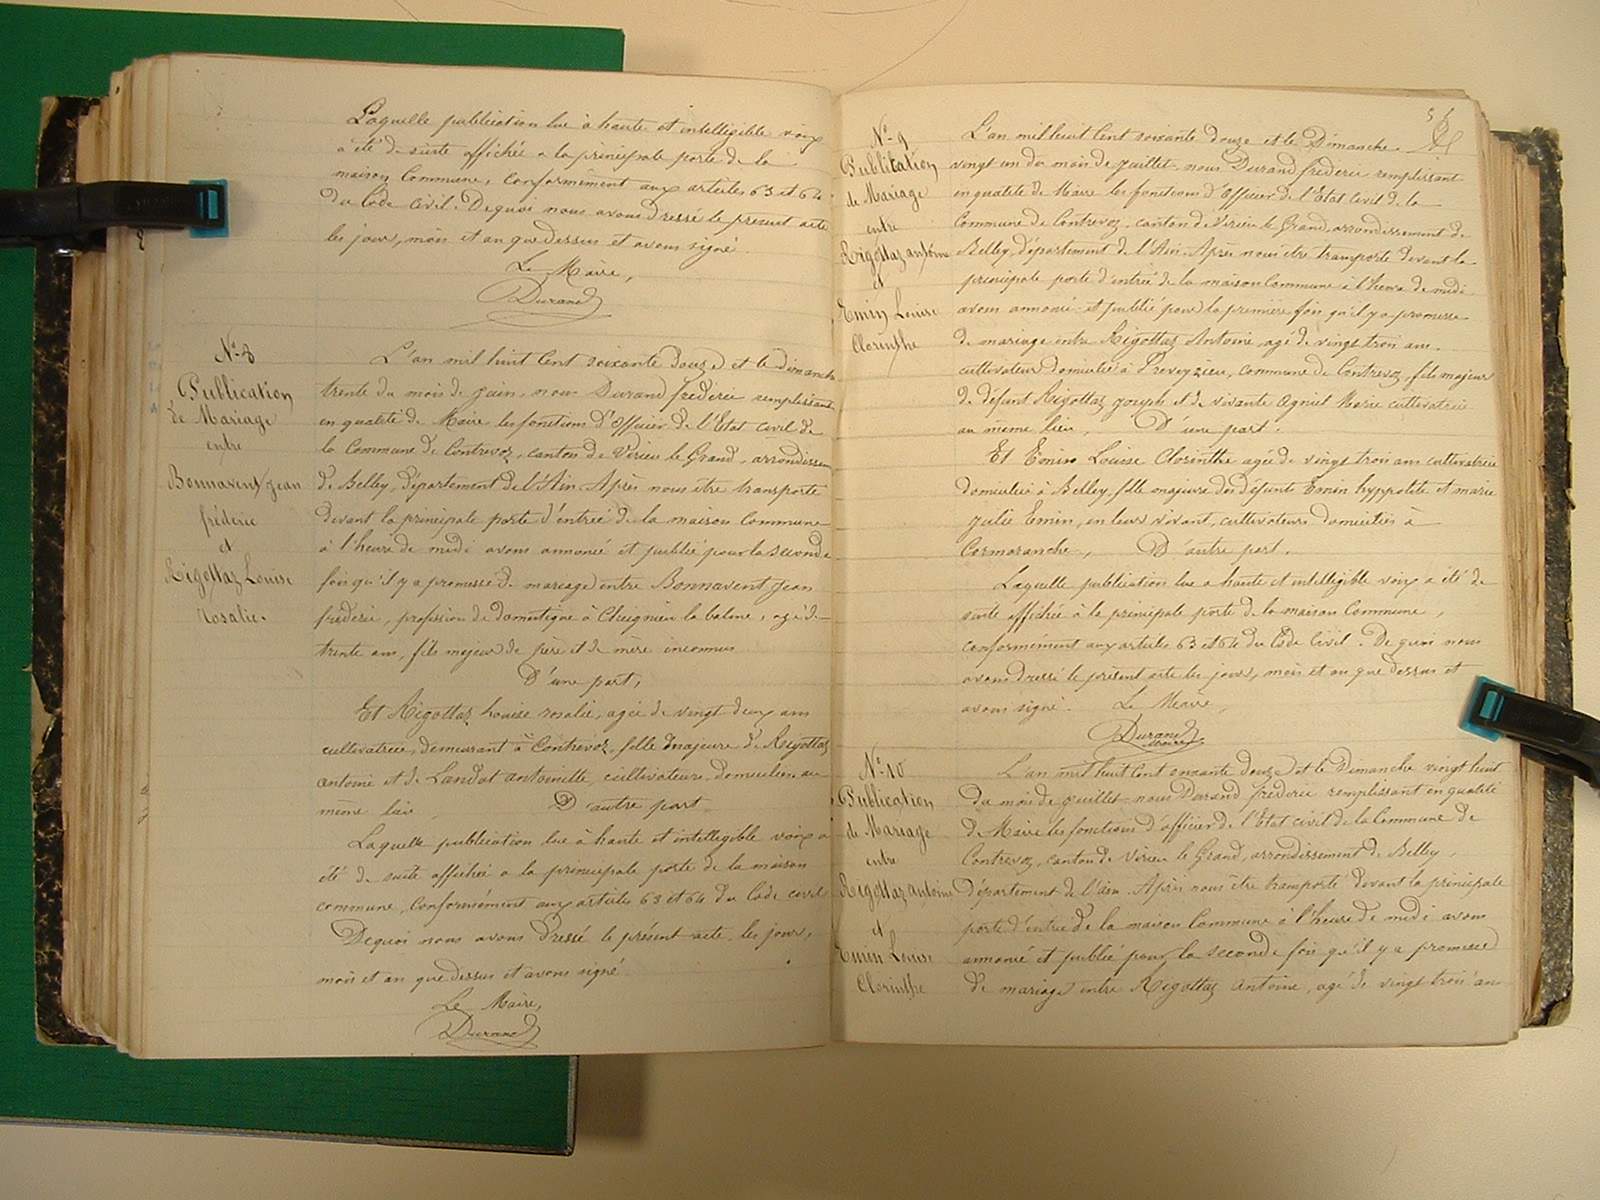 Laquelle publication lue à haute et intelligible voix
a été de suite affichée a la principale porte de la
maison Commune, conformément aux articles 63 et 64
du Code Civil. De quoi nous avons dressé le present acte
les jour, mois et an que dessus et avons signé.
Le Maire,
Durand
No 8
Publication
de Mariage
entre
Bonnavent Jean
fréderic
et
Rigottaz Louise
Rosalie.
L'an mil huit Cent soixante douze et le dimanche
trente du mois de juin, nous Durand fréderic remplissant
en qualité de Maire les fonctions d'Officier de l'Etat civil de
la Commune de Contrevoz, canton de Virieu le Grand, arrondissem
de Belley, département de l'Ain. Après nous être transporté
devant la principale porte d'entrée de la maison Commune
à l'heure de midi avons annoncé et publié pour la seconde
fois qu'il y a promesse de mariage entre Bonnavent Jean
fréderic, profession de domestique à Cheignieu la balme, agé de
trente ans, fils majeur de père et de mère inconnus
D'une part,
Et Rigottaz Louise rosalie, agée de vingt deux ans
cultivatrice, demeurant à Contrevoz, fille majeure de Rigottaz
antoine et de Landot antoinette, cultivateurs domiciliés au
même lieu, D'autre part
Laquelle publication lue à haute et intelligible voix a
été de suite affichée a la principale porte de la maison
commune, Conformément aux articles 63 et 64 du Code civil
De quoi nous avons dressé le présent acte les jour,
mois et an que dessus et avons signé
Le Maire,
Durand
56
No 9
Publication
de Mariage
entre
Rigottaz antoine
et
Emin Louise
Clorinthe
L'an mil huit Cent soixante douze et le Dimanche
vingt un du mois de juillet nous Durand fréderic remplissant
en qualité de Maire les fonctions d'Officier de l'Etat Civil de la
Commune de Contrevoz, canton de Virieu le Grand, arrondissement de
Belley, département de l'Ain. Après nous être transporté devant la
principale porte d'entrée de la maison Commune à l'heure de midi
avons annoncé et publié pour la première fois qu'il y a promesse
de mariage entre Rigottaz Antoine, agé de vingt trois ans,
cultivateur domicilié à Preveyzieu, commune de Contrevoz, fils majeur
de défunt Rigottaz joseph et de vivante Ogniel Marie cultivatrice
au même lieu, D'une part.
Et Emin Louise Clorinthe agée de vingt trois ans cultivatrice
domiciliée à Belley, fille majeure des défunts Emin hyppolite et marie
julie Emin, en leur vivant, cultivateurs domiciliés à
Cormaranche, D'autre part.
Laquelle publication lue a haute et intelligible voix a été de
suite affichée à la principale porte de la maison Commune,
conformément aux articles 63 et 64 du Code Civil. De quoi nous
avons dressé le présent acte les jour, mois et an que dessus et
avons signé. Le Maire,
Durand
No 10
Publication
de Mariage
entre
Rigottaz antoine
et
Emin Louise
Clorinthe
L'an mil huit Cent soixante douze et le Dimanche vingt huit
du mois de juillet nous Durand fréderic remplissant en qualité
de Maire les fonctions d'officier de l'Etat civil de la Commune de
Contrevoz, canton de Virieu le Grand, arrondissement de Belley,
département de l'ain. Après nous être transporté devant la principale
porte d'entrée de la maison Commune à l'heure de midi avons
annoncé et publié pour la seconde fois qu'il y a promesse
de mariage entre Rigottaz Antoine, agé de vingt trois ans